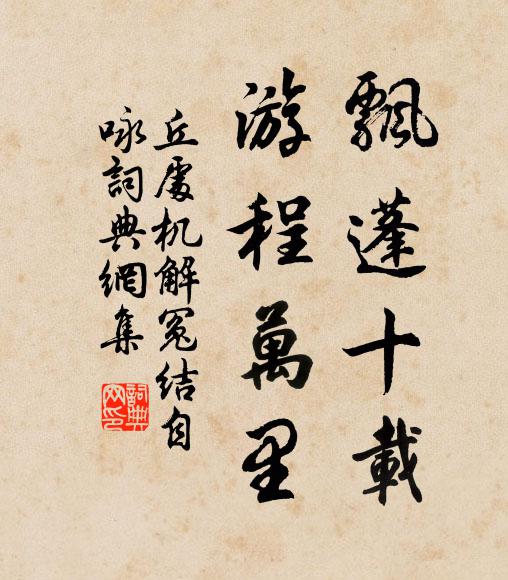 飄蓬十載
游程萬里
丘處机解冤結自
咏詞典網集
詞典
网印